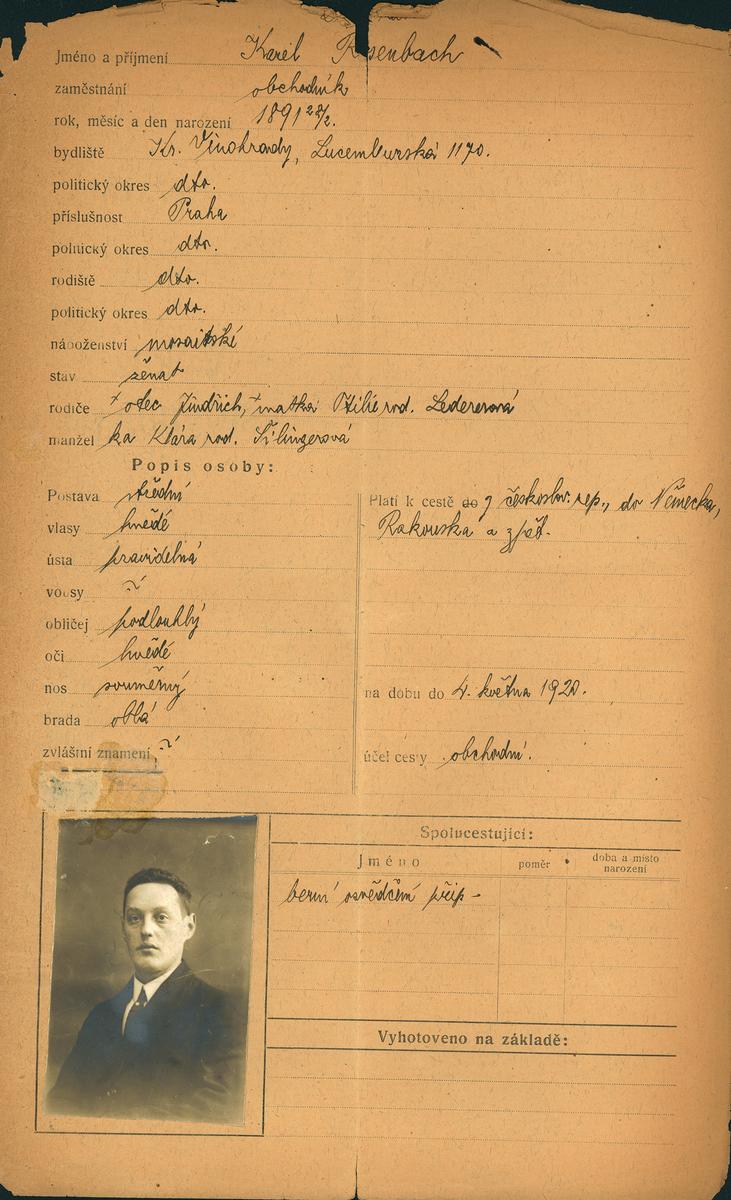 Jméno a příjmení Karel Rosenbach
zaměstnání obchodník
rok, měsíc a den narození 1891 28/2.
bydliště Kr. Vinohrady, Lucemburská 1170.
politický okres dto.
příslušnost Praha
politický okres dto.
rodiště dto.
politický okres dto.
náboženství mosaitské
stav ženat
rodiče + otec Jindřich, + matka Otilie rod. Ledererová
manžel ka Klára rod.
Popis osoby:
Postava střední
vlasy hnědé
ústa pravidelná
vousy
obličej podlouhlý
oči hnědé
nos souměrný
brada oblá
zvláštní znamení
Platí k cestě do českoslov. rep., do Německa,
Rakouska a zpět.
na dobu do 4. května 1920.
účel cesty obchodní.
Spolucestující:
Jméno poměr doba a místo narození
berní osvědčení přip -
Vyhotoveno na základě: